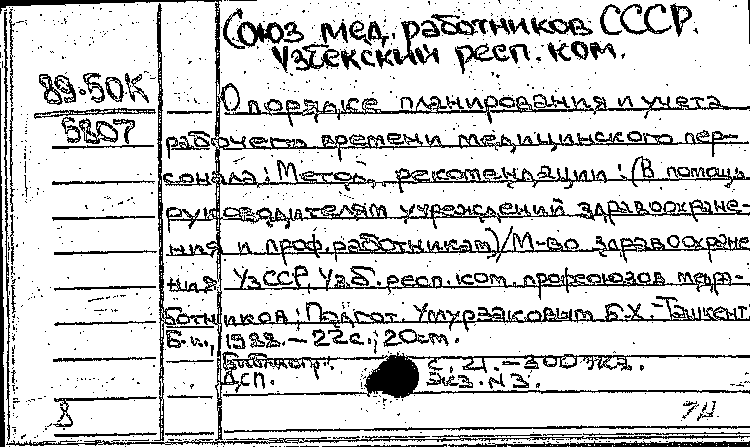 Союз мед. работников СССР.
Узбекский респ. ком.
89-50К
5807
О порядке планирования и учета
рабочего времени медицинского пер-
сонала: Метод. рекомендации: (В помощь
руководителям учреждений здравоохране-
ния и проф. работникам)/М-во здравоохране
ния УзССР, Узб. респ. ком. профсоюзов медра-
ботников; Подгот. Умурзаковым Б.Х.-Ташкент:
Б.и., 1988.-22с.; 20см.
Библиогр.: с. 21.-300 экз.
ДСП. Экз. N3.